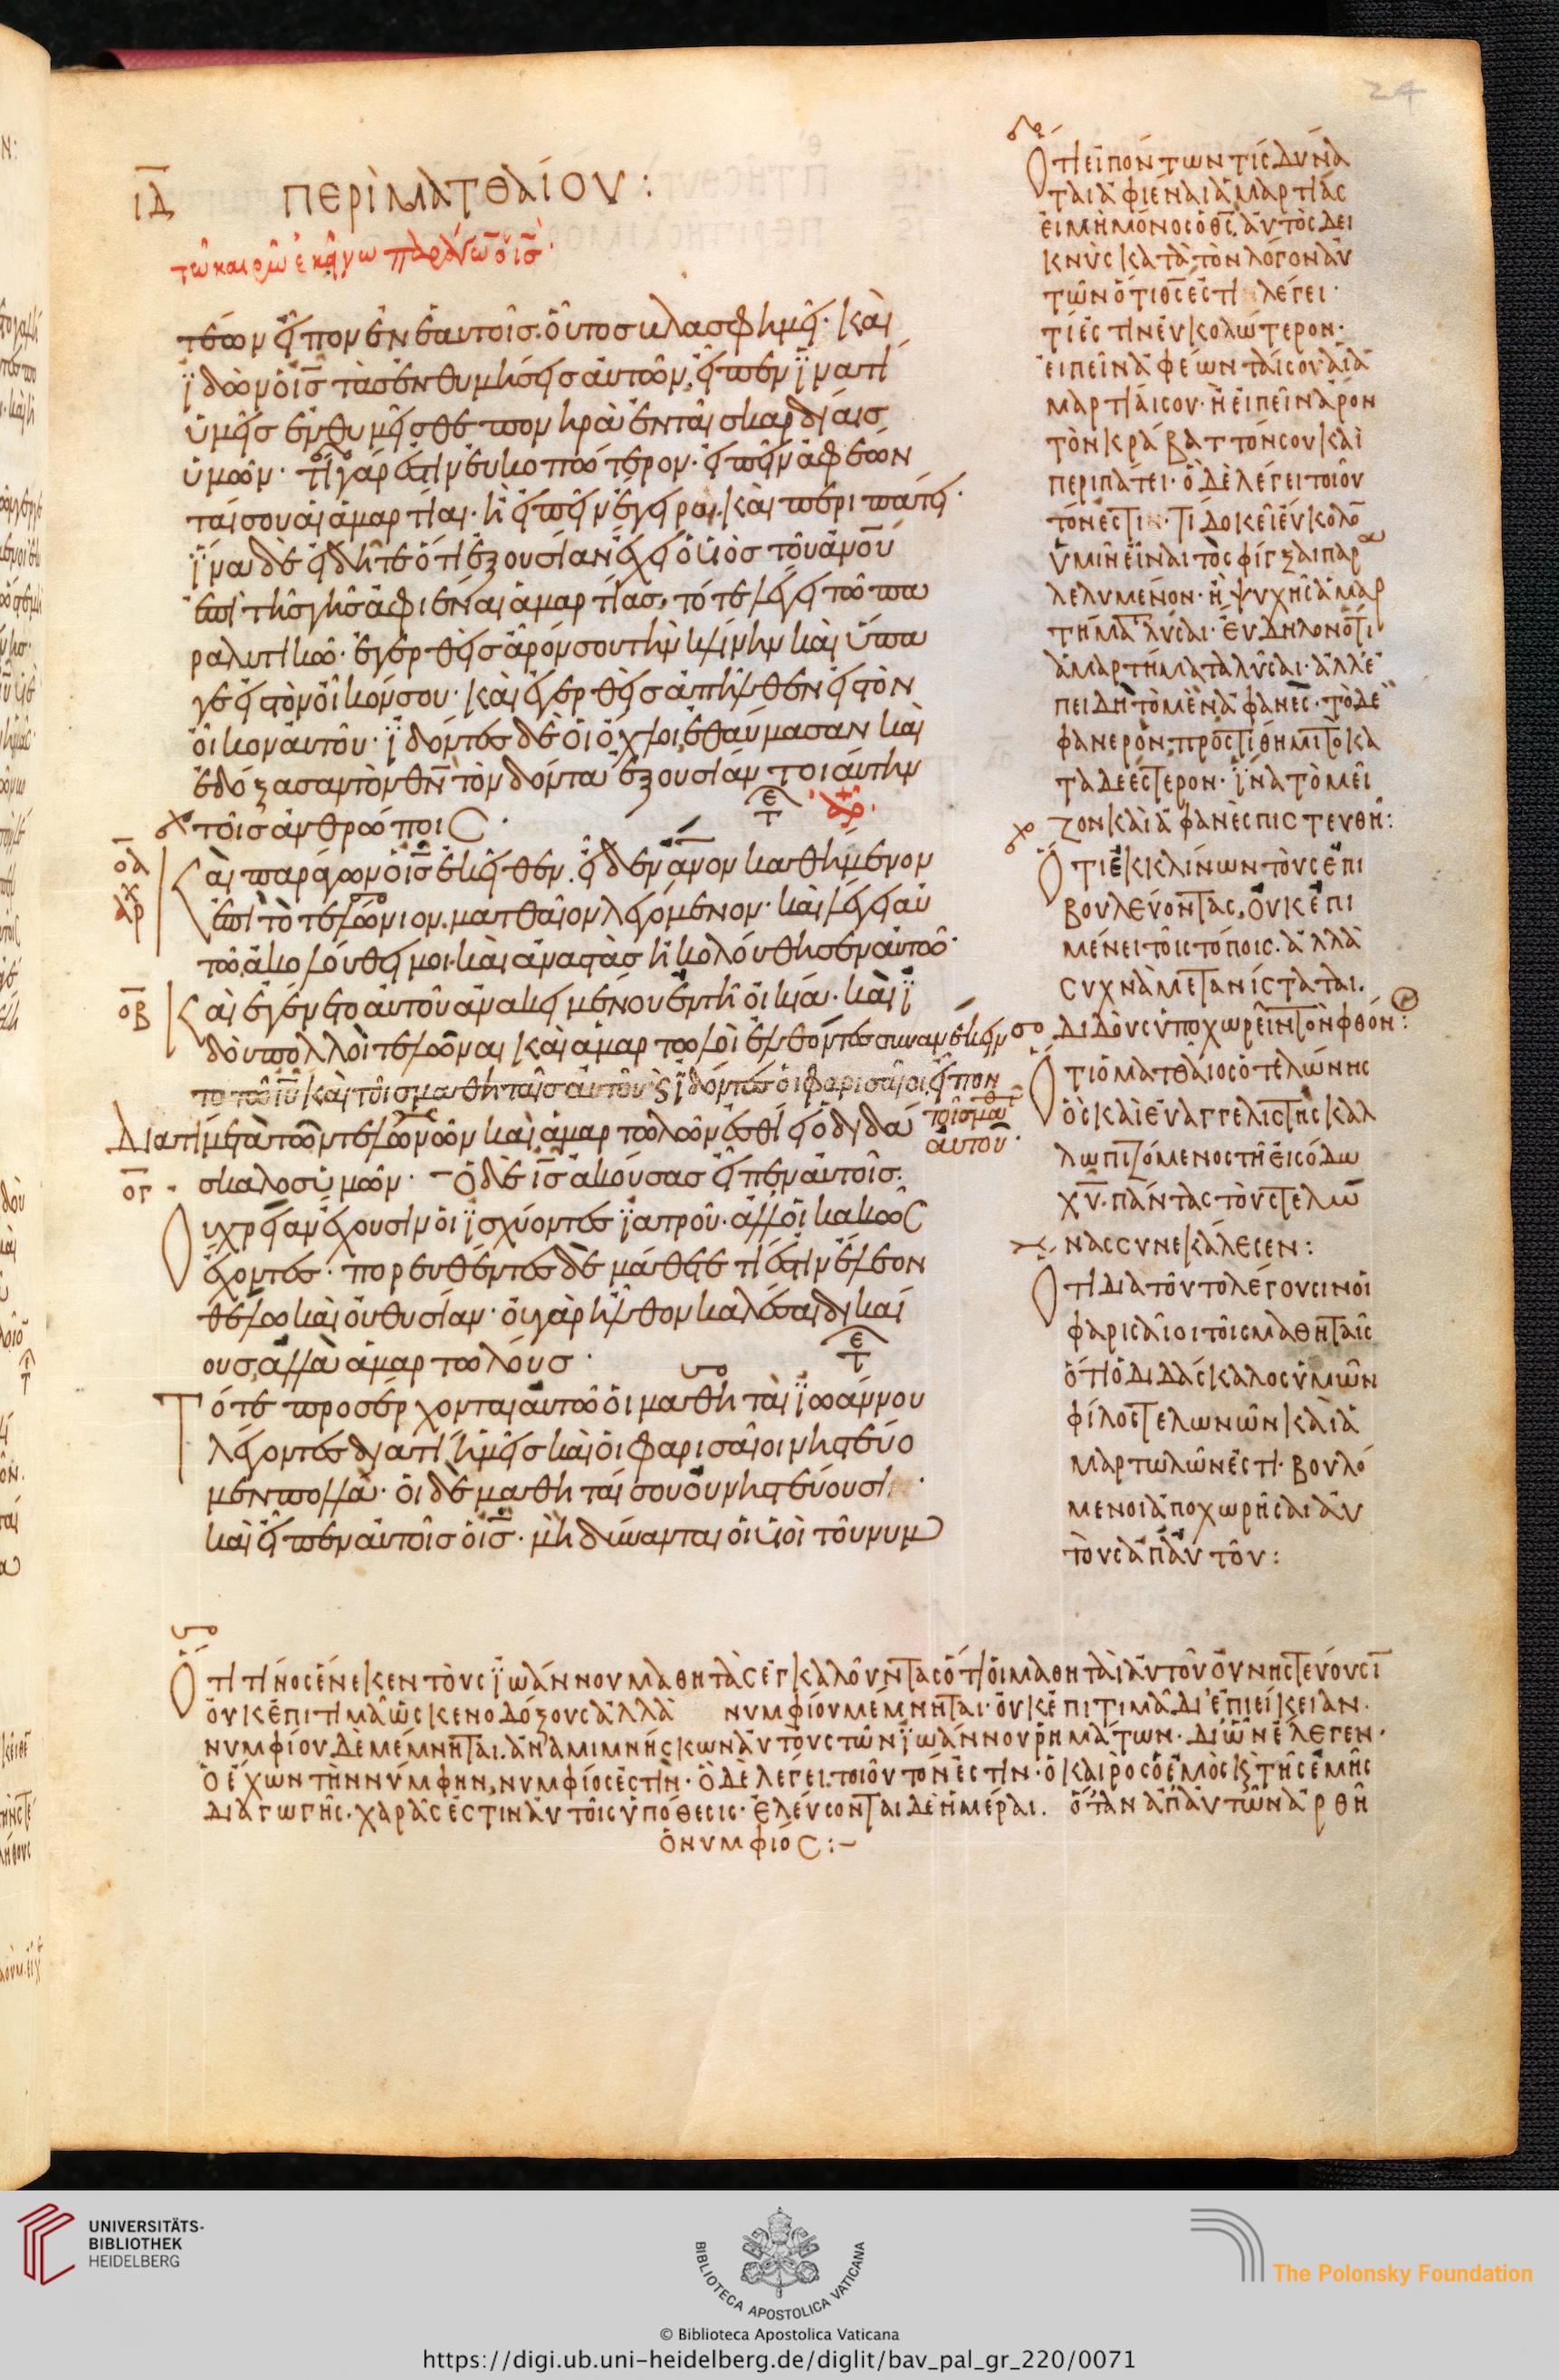 24
ΙΔ ΠΕΡῚ ΜΑΤΘΑΊΟΥ:
τῶ καιρῶ ἐκείνω παράγων ὁ ι̅ς̅
τέων εἶπον ἐν ἑαυτοῖς· οὗτος βλασφημεῖ· καὶ
ἰδὼν ὁ ι̅ς̅ τὰς ἐνθυμήσεις αὐτῶν, εἶπεν ἵνα τί
ὑμεῖς ἐνθυμεῖσθε πονηρὰ ἐν ταῖς καρδίαις
ὑμῶν· τί γάρ ἐστιν εὐκοπώτερον· εἰπεῖν ἀφέων
ταί σου αἱ ἁμαρτίαι· ἢ εἰπεῖν ἔγειραι καὶ περιπάτει·
ἵνα δὲ εἰδῆτε ὅτι ἐξουσίαν ἔχει ὁ υἱὸς τοῦ α̅ν̅ο̅υ̅
ἐπὶ τῆς γῆς ἀφιέναι ἁμαρτίας, τότε λέγει τῶ πα
ραλυτικῶ· ἐγερθεὶς ἆρόν σου τὴν κλίνην καὶ ὕπα
γε εἰς τὸν οἶκόν σου· καὶ ἐγερθεὶς ἀπῆλθεν εἰς τὸν
οἶκον αὐτοῦ· ἰδόντες δὲ οἱ ὄχλοι ἐθαύμασαν καὶ
ἐδόξασαν τὸν θ̅ν̅ τὸν δόντα ἐξουσίαν τοιαύτην
τοῖς ἀνθρώποις·
ο̅α̅ Καὶ παράγων ὁ ι̅ς̅ ἐκεῖθεν· εἶδεν α̅ν̅ο̅ν̅ καθήμενον
ἐπὶ τὸ τελώνιον, ματθαῖον λεγόμενον· καὶ λέγει αὐ
τῶ, ἀκολούθει μοι· καὶ ἀναστὰς ἠκολούθησεν αὐτῶ·
ο̅β̅ Καὶ ἐγένετο αὐτοῦ ἀνακειμένου ἐν τῆ οἰκία· καὶ ἰ
δοὺ πολλοὶ τελῶναι καὶ ἁμαρτωλοὶ ἐλθόντες συνανέκειν
το τῶ ι̅υ̅ καὶ τοῖς μαθηταῖς αὐτοῦ· ἰδόντες οἱ φαρισαῖοι εἶπον
τοῖς μαθ
αὐτοῦ·
Διατί μετὰ τῶν τελωνῶν καὶ ἁμαρτωλῶν ἐσθίει ὁ διδά
ο̅γ̅ σκαλος ὑμῶν· Ὁ δὲ ι̅ς̅ ἀκούσας εἶπεν αὐτοῖς·
Οὐ χρείαν ἔχουσιν οἱ ἰσχύοντες ἰατροῦ· ἀλλ' οἱ κακῶς
ἔχοντες· πορευθέντες δὲ μάθετε τί ἐστιν ἔλεον
θέλω καὶ οὐ θυσίαν· οὐ γὰρ ἦλθον καλέσαι δικαί
ους, ἀλλὰ ἁμαρτωλούς·
Τότε προσέρχονται αὐτῶ οἱ μαθηταὶ ἰωάννου
λέγοντες διατί ἡμεῖς καὶ οἱ φαρισαῖοι νηστεύο
μεν πολλὰ· οἱ δὲ μαθηταί σου οὐ νηστεύουσι·
καὶ εἶπεν αὐτοῖς ὁ ι̅ς̅· μὴ δύνανται οἱ υἱοὶ τοῦ νυμ
Ὅτι εἰπόντων τίς δύνα
ται ἀφιέναι ἁμαρτίας
εἰ μὴ μόνος ὁ θ̅ς̅, αὐτὸς δει
κνὺς κατὰ τὸν λόγον αὐ
τῶν ὅτι θ̅ς̅ ἐστι λέγει·
τί ἐστιν εὐκολώτερον·
εἰπεῖν ἀφέωνταί σου αἱ ἁ
μαρτίαι σου· ἢ εἰπεῖν ἆρον
τὸν κράβαττόν σου καὶ
περιπάτει· ὃ δὲ λέγει τοιοῦ
τόν ἐστιν· τί δοκεῖ εὔκολο
ὑμῖν εἶναι τὸ σφίγξαι παρα
λελυμένον· ἢ ψυχῆς ἁμαρ
τήματα λῦσαι· εὔδηλον ὅτι
ἁμαρτήματα λῦσαι· ἀλλ' ἐ
πειδὴ τὸ μὲν ἀφανὲς· τὸ δὲ
φανερὸν, προστίθημι τὸ κα
ταδεέστερον· ἵνα τὸ μεῖ
ζον καὶ ἀφανὲς πιστευθῆ:
Ὅτι ἐκκλίνων τοὺς ἐπι
βουλεύοντας, οὐκ ἐπι
μένει τοῖς τόποις· ἀλλὰ
συχνὰ μετανίσταται·
διδοὺς ὑποχωρεῖν τὸν φθόν:
Ὅτι ὁ ματθαῖος ὁ τελώνης
ὃς καὶ εὐαγγελιστὴς καλ
λωπιζόμενος τῆ εἰσόδω
χ̅υ̅· πάντας τοὺς τελω
νας συνεκάλεσεν:
Ὅτι διὰ τοῦτο λέγουσιν οἱ
φαρισαῖοι τοῖς μαθηταῖς
ὅτι ὁ διδάσκαλος ὑμῶν
φίλος τελωνῶν καὶ ἁ
μαρτωλῶν ἐστι· βουλό
μενοι ἀποχωρῆσαι αὐ
τοὺς ἀπ' αὐτοῦ:
Ὅτι τίνος ἕνεκεν τοὺς ἰωάννου μαθητὰς ἐγκαλοῦντας ὅτι οἱ μαθηταὶ αὐτοῦ οὐ νηστεύουσι
οὐκ ἐπιτιμᾶ ὡς κενοδόξους ἀλλὰ νυμφίου μέμνηται· οὐκ ἐπιτιμᾶ δι' ἐπιείκειαν·
νυμφίου δὲ μέμνηται· ἀναμιμνήσκων αὐτοὺς τῶν ἰωάννου ῥημάτων· δι' ὧν ἔλεγεν·
ὁ ἔχων τὴν νύμφην, νυμφίος ἐστὶν· ὃ δὲ λέγει τοιοῦτόν ἐστιν· ὁ καιρὸς ὁ ἐμὸς κ̀ τῆς ἐμῆς
διαγωγῆς· χαρᾶς ἐστιν αὐτοῖς ὑπόθεσις· ἐλεύσονται δὲ ἡμέραι· ὅταν ἀπ' αὐτῶν ἀρθῆ
ὁ νυμφίος:-
UNIVERSITÄTS-
BIBLIOTHEK
HEIDELBERG
BIBLIOTECA APOSTOLICA VATICANA
The Polonsky Foundation
© Biblioteca Apostolica Vaticana
https://digi.ub.uni-heidelberg.de/diglit/bav_pal_gr_220/0071